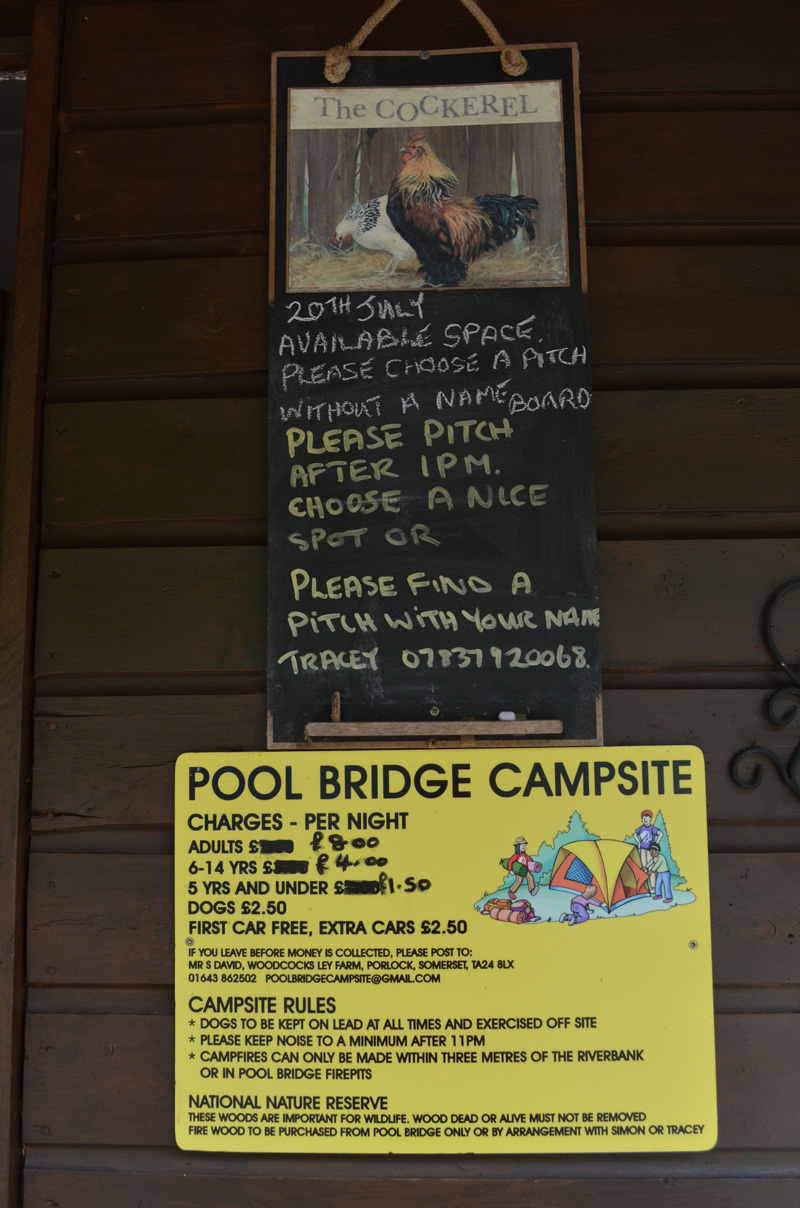 The COCKEREL
20TH JULY
AVAILABLE SPACE.
PLEASE CHOOSE A PITCH
WITHOUT A NAME BOARD
PLEASE PITCH
AFTER 1PM.
CHOOSE A NICE
SPOT OR
PLEASE FIND A
PITCH WITH YOUR NAME
TRACEY 07837920068.
POOL BRIDGE CAMPSITE
CHARGES - PER NIGHT
ADULTS £ £8.00
6-14 YRS £ £4.00
5 YRS AND UNDER £ £1.50
DOGS £2.50
FIRST CAR FREE, EXTRA CARS £2.50
IF YOU LEAVE BEFORE MONEY IS COLLECTED, PLEASE POST TO:
MR S DAVID, WOODCOCKS LEY FARM, PORLOCK, SOMERSET, TA24 8LX
01643 862502 POOLBRIDGECAMPSITE@GMAIL.COM
CAMPSITE RULES
* DOGS TO BE KEPT ON LEAD AT ALL TIMES AND EXERCISED OFF SITE
* PLEASE KEEP NOISE TO A MINIMUM AFTER 11PM
* CAMPFIRES CAN ONLY BE MADE WITHIN THREE METRES OF THE RIVERBANK
OR IN POOL BRIDGE FIREPITS
NATIONAL NATURE RESERVE
THESE WOODS ARE IMPORTANT FOR WILDLIFE. WOOD DEAD OR ALIVE MUST NOT BE REMOVED
FIRE WOOD TO BE PURCHASED FROM POOL BRIDGE ONLY OR BY ARRANGEMENT WITH SIMON OR TRACEY